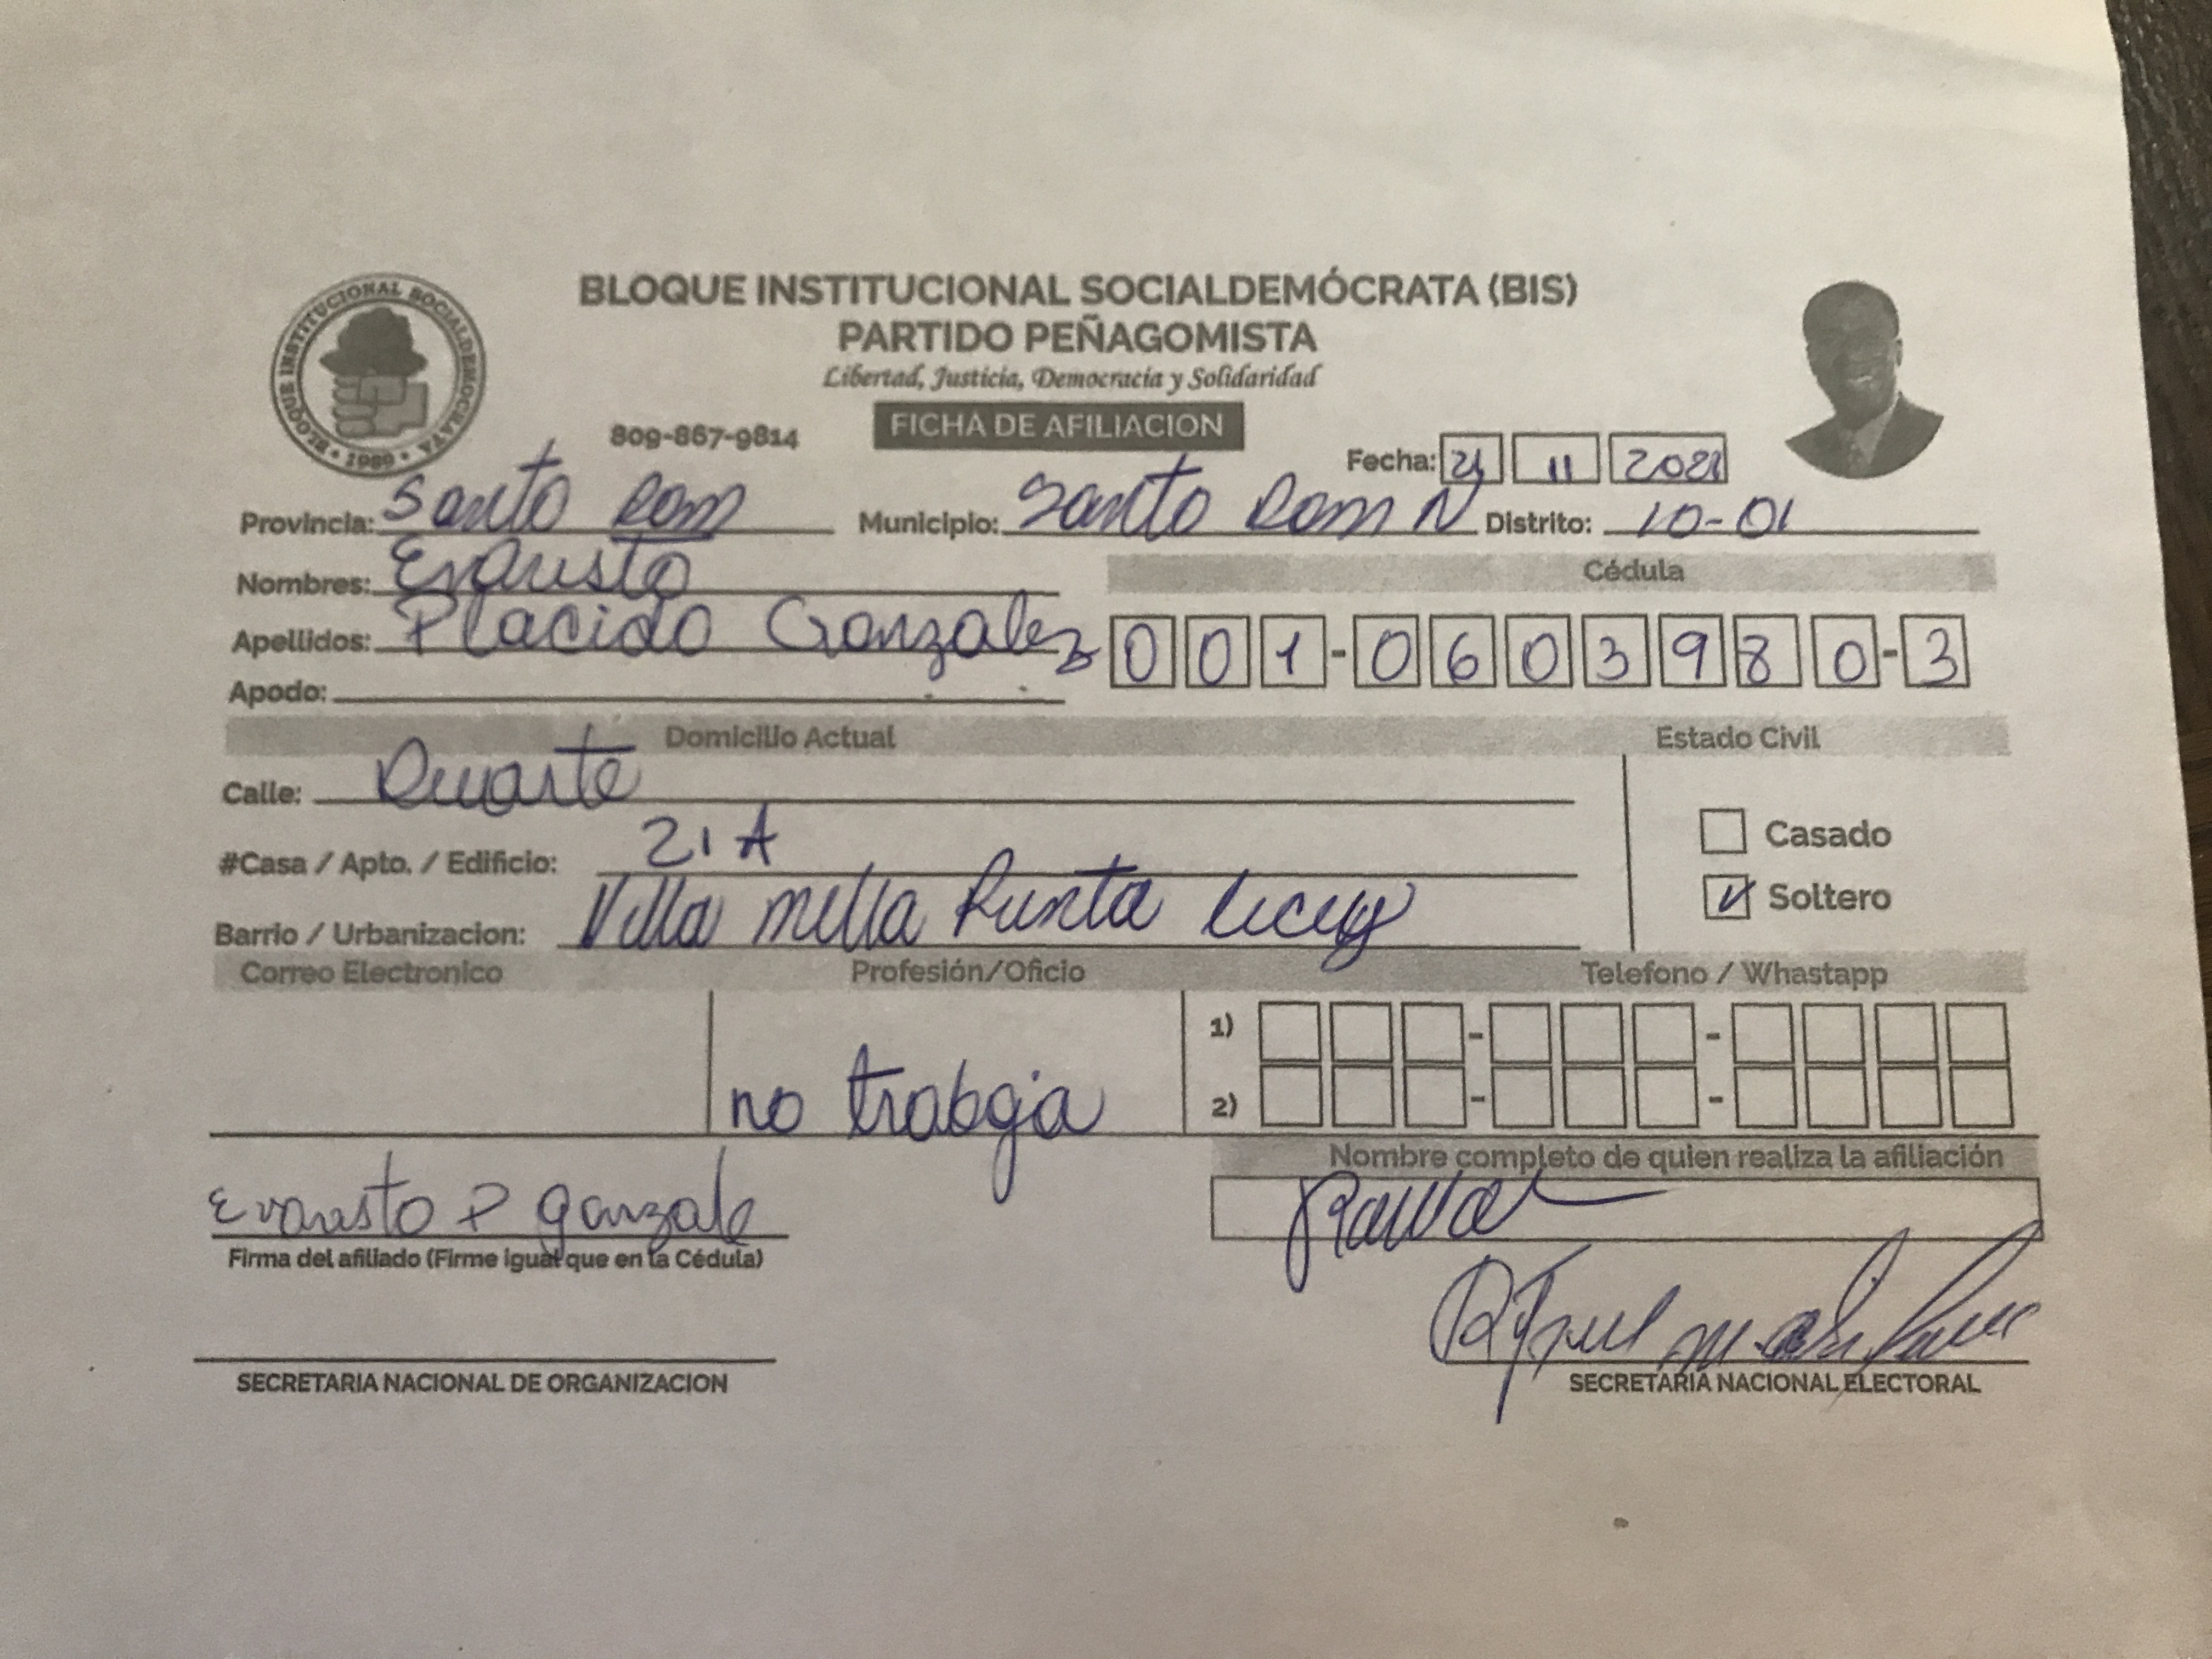 BLOQUE INSTITUCIONAL SOCIALDEMÓCRATA (BIS)
PARTIDO PEÑAGOMISTA
Libertad, Justicia, Democracia y Solidaridad
BLOQUE INSTITUCIONAL SOCIALDEMOCRATA • 1989 •
809-867-9814
FICHA DE AFILIACION
Fecha: 21 11 2021
Provincia: Santo Dom Municipio: Santo Dom N Distrito: 10-01
Nombres: Evaristo
Cédula
Apellidos: Placido Gonzalez 001-0603980-3
Apodo:
Domicilio Actual Estado Civil
Calle: Duarte
Casado
#Casa / Apto. / Edificio: 21 A
Soltero
Barrio / Urbanizacion: Villa mella Punta
Correo Electronico Profesión/Oficio Telefono / Whastapp
1)
no trabaja
2)
Nombre completo de quien realiza la afiliación
Evaristo P gonzale
Firma del afiliado (Firme igual que en la Cédula)
SECRETARIA NACIONAL DE ORGANIZACION
SECRETARIA NACIONAL ELECTORAL